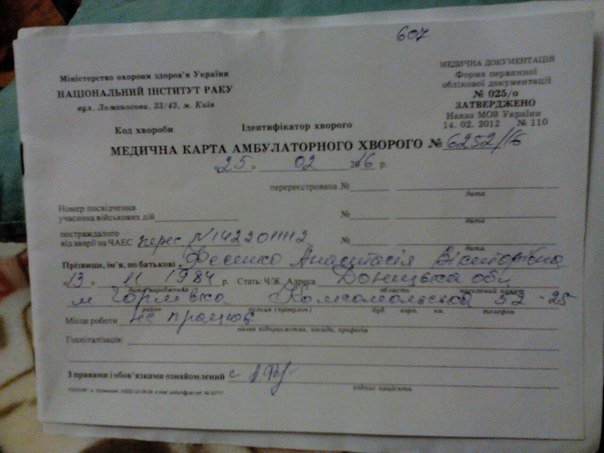 607
Міністерство охорони здоров'я України
НАЦІОНАЛЬНИЙ ІНСТИТУТ РАКУ
вул. Ломоносова, 33/43, м. Київ
МЕДИЧНА ДОКУМЕНТАЦІЯ
Форма первинної
облікової документації
№ 025/о
ЗАТВЕРДЖЕНО
Наказ МОЗ України
14. 02. 2012 № 110
Код хвороби Ідентифікатор хворого
МЕДИЧНА КАРТА АМБУЛАТОРНОГО ХВОРОГО № 6252/16
25. 02 2016 р.
перереєстрована № дата
Номер посвідчення
учасника військових дій № дата
постраждалого
від аварії на ЧАЕС перес №
Прізвище, ім'я, по батькові Фесенко Анастасія Вікторівна
13. 11 1984 г. Стать: Ч/Ж. Адреса Донецька обл
дата народження область населений пункт
м Горлівка Комсомольська 52-25
район вулиця (провулок) буд. корп. кв. телефон
Місце роботи не працює
назва підприємства, посада, професія
Госпіталізація:
З правами і обов'язками ознайомлений
підпис пацієнта